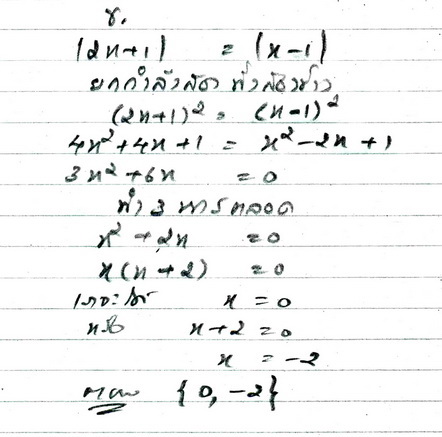 8.
|2x+1| = |x-1|
ยกกำลังสอง ทั้งสองข้าง
(2x+1)² = (x-1)²
4x²+4x+1 = x²-2x+1
3x²+6x = 0
นำ 3 หารตลอด
x²+2x = 0
x(x+2) = 0
x = 0
หรือ x+2 = 0
x = -2
ตอบ {0, -2}